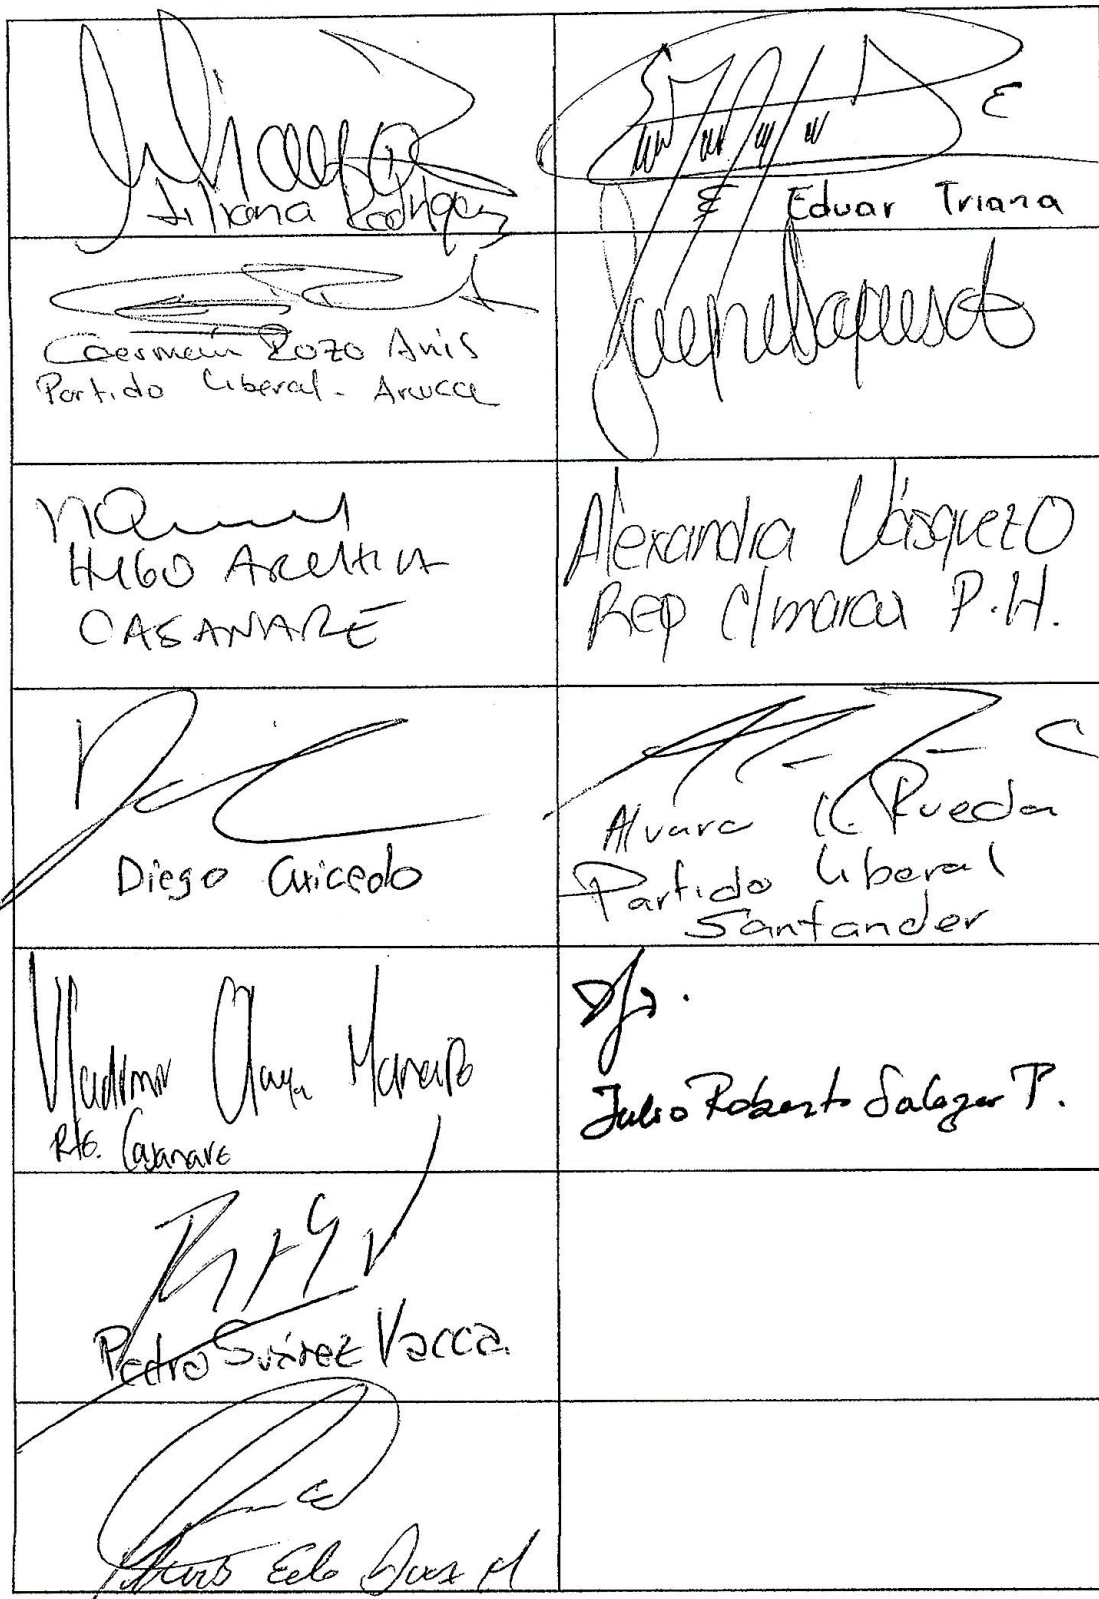 Liliana Rodríguez
Eduar Triana
Germán Rozo Anís
Partido Liberal - Arauca
HUGO ARCHILA
CASANARE
Alexandra Vásquez O
Rep C/marca P.H.
Diego Caicedo
Alvaro L. Rueda
Partido Liberal
Santander
Vladimir Olaya Mancipe
Rte. Casanare
Julio Roberto Salazar P.
Pedro Suárez Vacca.
Edo Díaz M